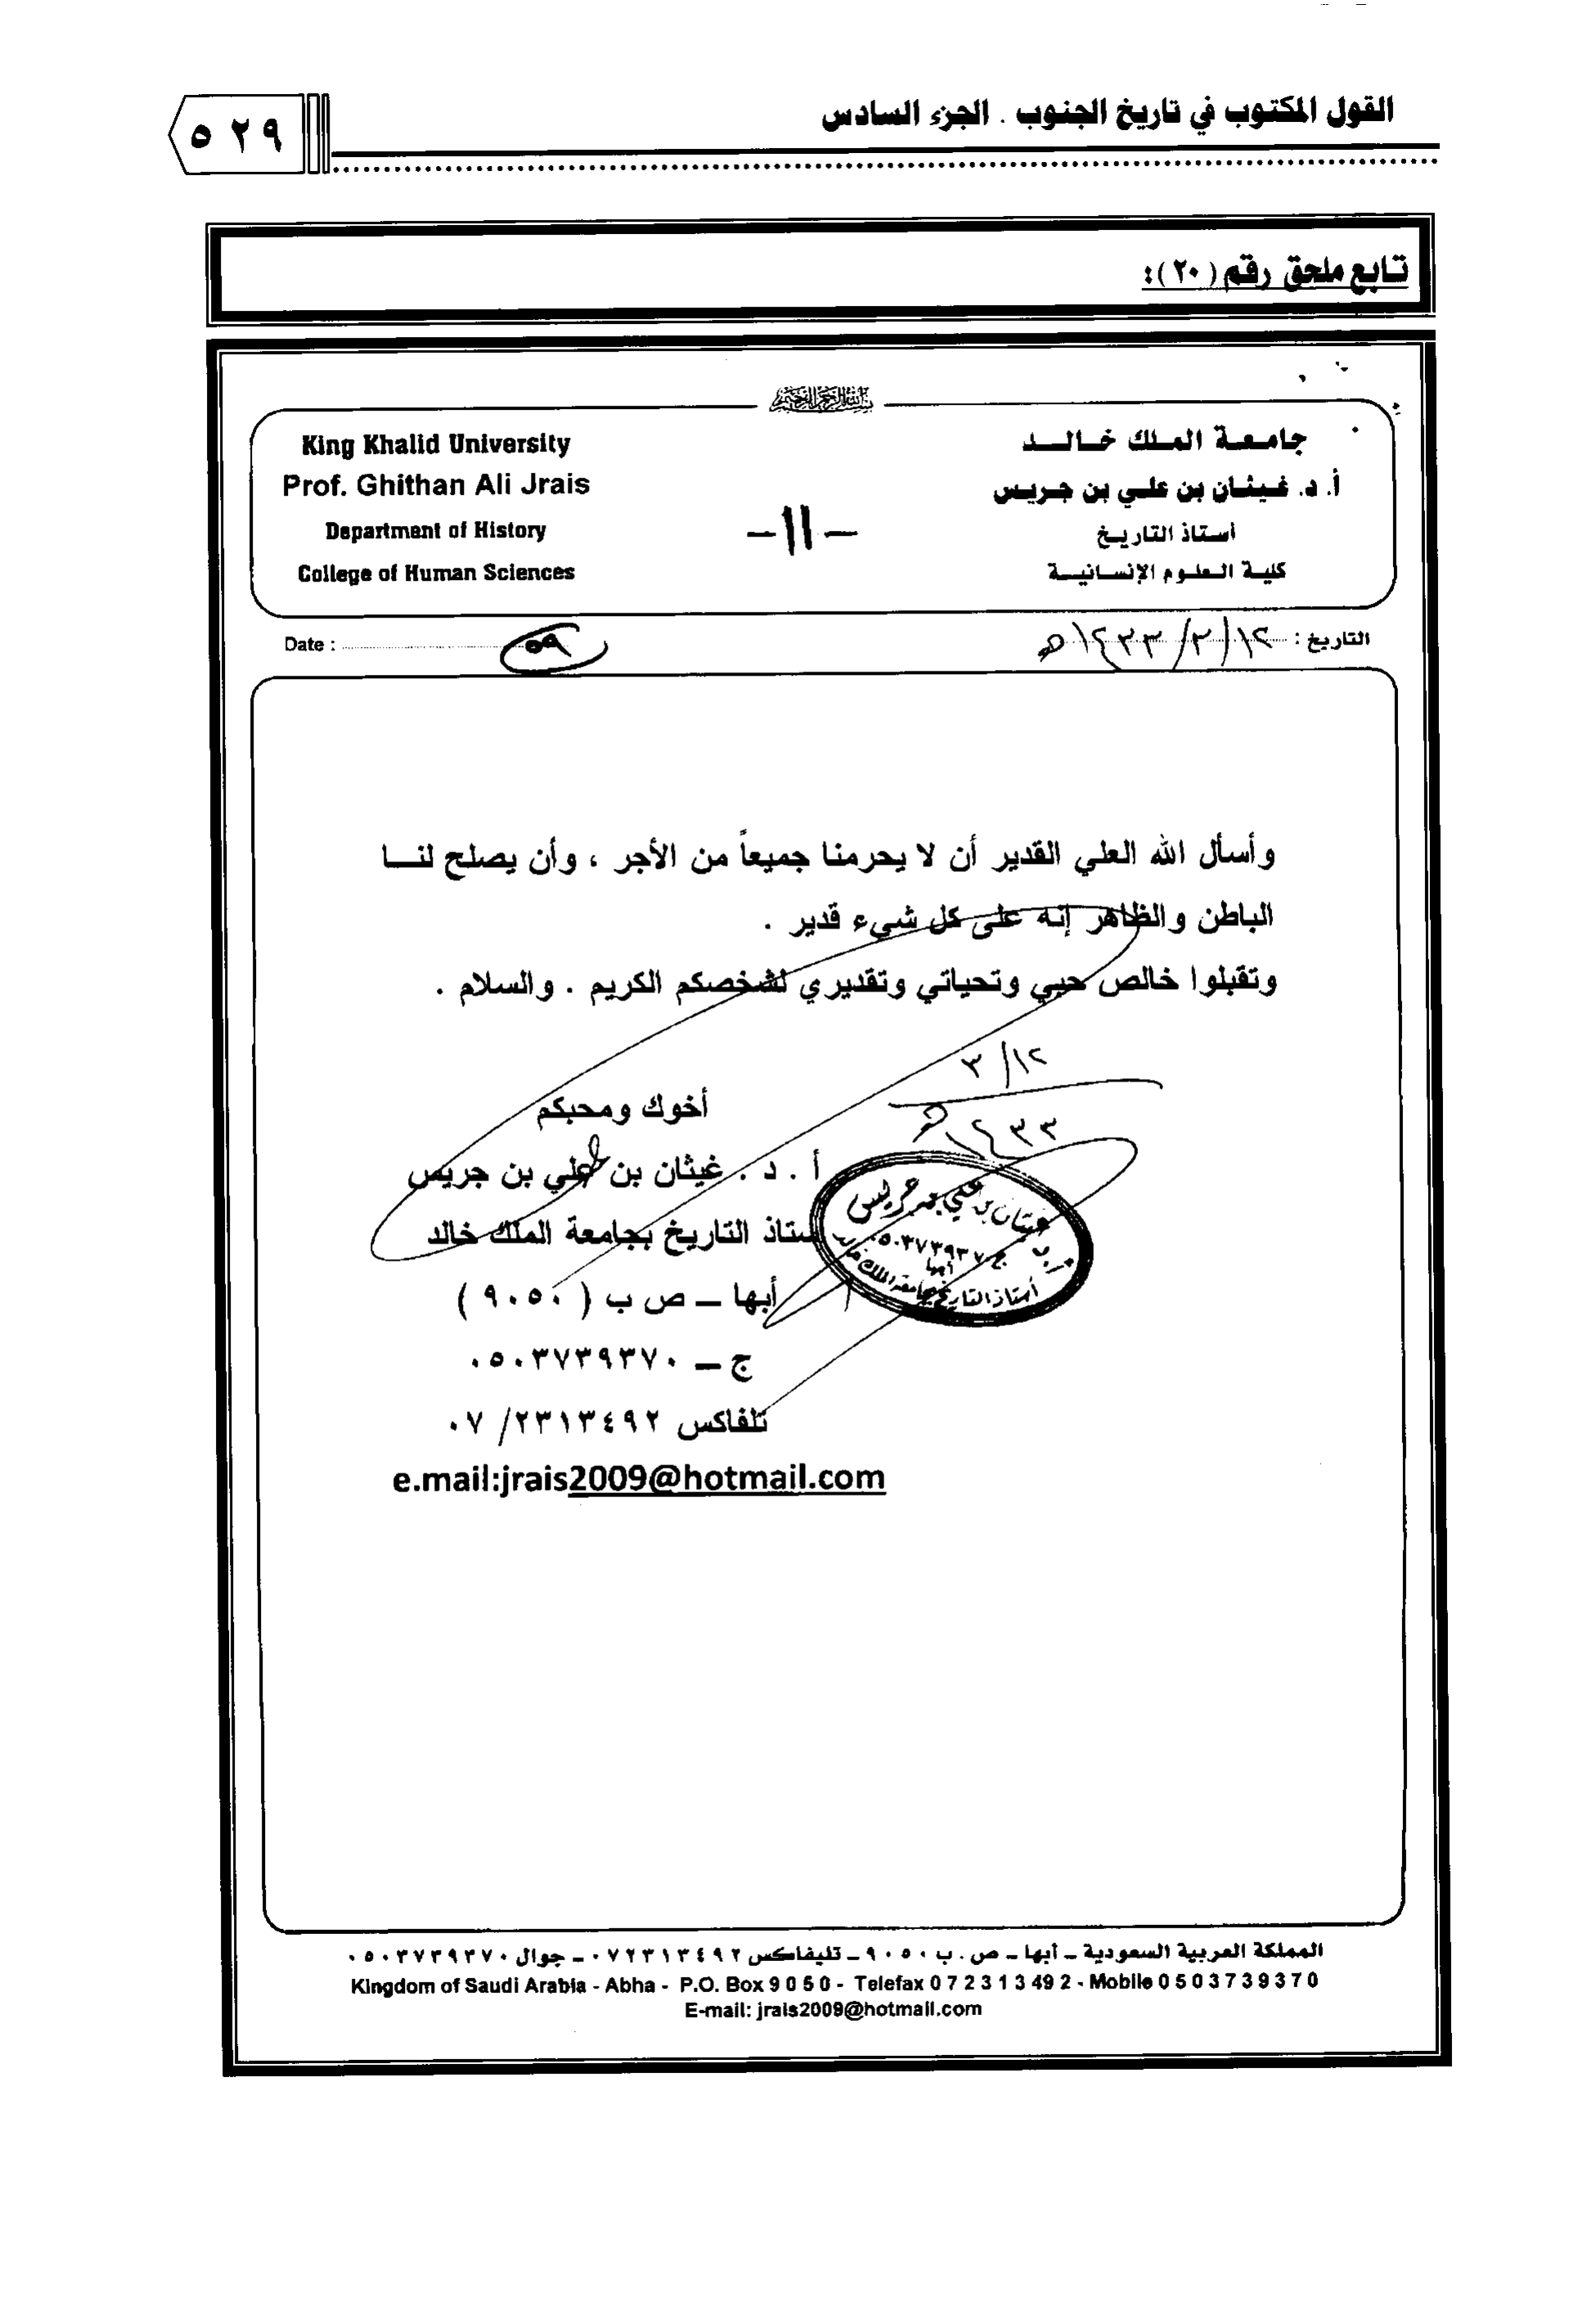 القول المكتوب في تاريخ الجنوب . الجزء السادس
٥٢٩
تابع ملحق رقم (٢٠):
بسم الله الرحمن الرحيم
جامعة الملك خالد
أ. د. غيثان بن علي بن جريس
أستاذ التاريخ
كلية العلوم الإنسانية
-١١-
King Khalid University
Prof. Ghithan Ali Jrais
Department of History
College of Human Sciences
التاريخ : ١٢/٣/١٤٣٣هـ
Date : ٥٩
وأسأل الله العلي القدير أن لا يحرمنا جميعاً من الأجر ، وأن يصلح لنا
الباطن والظاهر إنه على كل شيء قدير .
وتقبلوا خالص حبي وتحياتي وتقديري لشخصكم الكريم . والسلام .
١٢/٣
١٤٣٣هـ
أخوك ومحبكم
أ . د . غيثان بن علي بن جريس
ستاذ التاريخ بجامعة الملك خالد
أبها – ص ب ( ٩٠٥٠ )
ج – ٠٥٠٣٧٣٩٣٧٠
تلفاكس ٢٣١٣٤٩٢/ ٠٧
e.mail:jrais2009@hotmail.com
غيثان بن علي بن جريس
ج ٠٥٠٣٧٣٩٣٧٠
أبها
أستاذ التاريخ بجامعة الملك خالد
المملكة العربية السعودية – أبها – ص . ب ٩٠٥٠ – تليفاكس ٠٧٢٣١٣٤٩٢ – جوال ٠٥٠٣٧٣٩٣٧٠
Kingdom of Saudi Arabia - Abha - P.O. Box 9 0 5 0 - Telefax 0 7 2 3 1 3 49 2 - Mobile 0 5 0 3 7 3 9 3 7 0
E-mail: jrais2009@hotmail.com